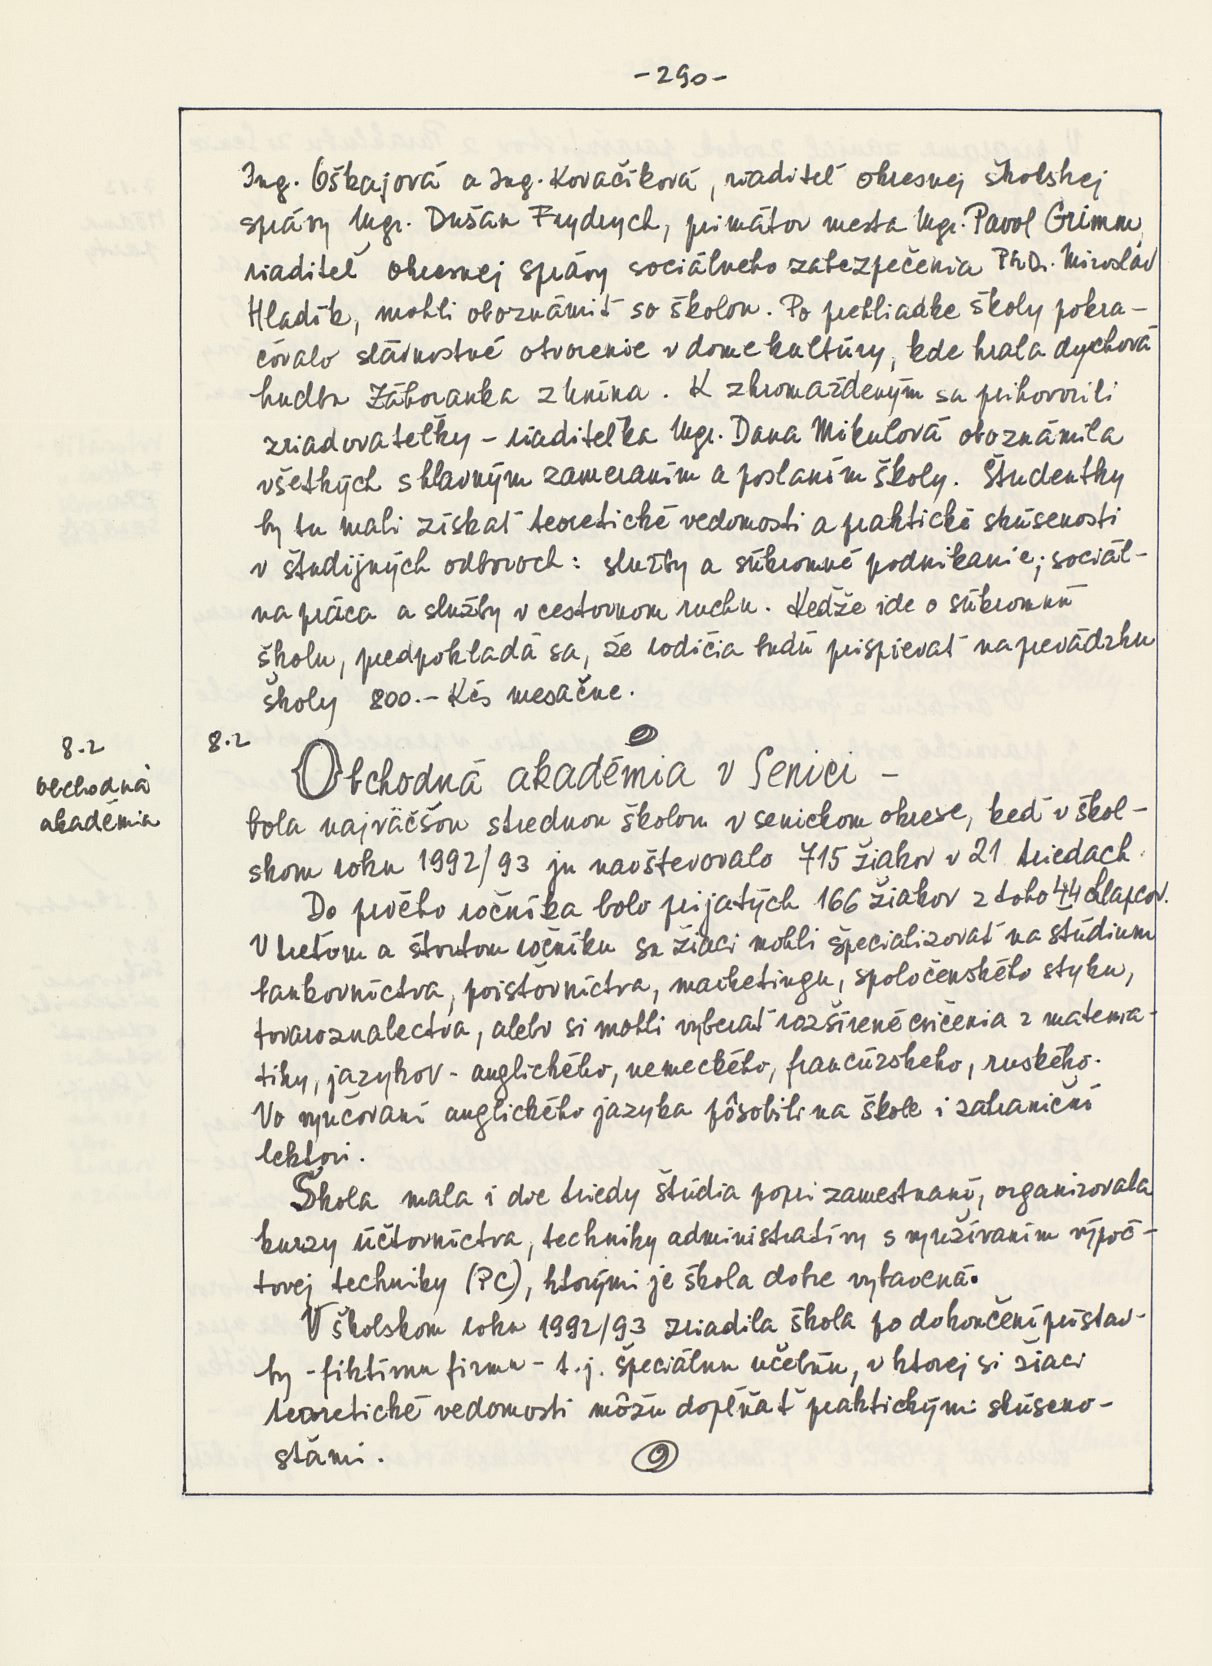 -290-
Ing. Oškajová a Ing. Kovačíková, riaditeľ okresnej školskej
správy Mgr. Dušan Frydrych, primátor mesta Mgr. Pavol Grimm,
riaditeľ okresnej správy sociálneho zabezpečenia PhDr. Miroslav
Hladík, mohli oboznámiť so školou. Po prehliadke školy pokra-
čovalo slávnostné otvorenie v dome kultúry, kde hrala dychová
hudba Záhoranka z Unína. K zhromaždeným sa prihovorili
zriadovateľky - riaditeľka Mgr. Dana Mikulová oboznámila
všetkých s hlavným zameraním a poslaním školy. Študentky
by tu mali získať teoretické vedomosti a praktické skúsenosti
v študijných odboroch: služby a súkromné podnikanie; sociál-
na práca a služby v cestovnom ruchu. Kedže ide o súkromnú
školu, predpokladá sa, že rodičia budú prispievať na prevádzku
školy 800.- Kčs mesačne.
8.2
obchodná
akadémia
8.2
Obchodná akadémia v Senici -
bola najväčšou strednou školou v senickom okrese, keď v škol-
skom roku 1992/93 ju navštevovalo 715 žiakov v 21 triedach.
Do prvého ročníka bolo prijatých 166 žiakov z toho 44 chlapcov.
V treťom a štvrtom ročníku sa žiaci mohli špecializovať na štúdium
bankovníctva, poisťovníctva, marketingu, spoločenského styku,
tovaroznalectva, alebo si mohli vyberať rozšírené cvičenia z matema-
tiky, jazykov - anglického, nemeckého, francúzskeho, ruského.
Vo vyučovaní anglického jazyka pôsobili na škole i zahraniční
lektori.
Škola mala i dve triedy štúdia popri zamestnaní, organizovala
kurzy účtovníctva, techniky administratívy s využívaním výpoč-
tovej techniky (PC), ktorými je škola dobre vybavená.
V školskom roku 1992/93 zriadila škola po dokončení prístav-
by - fiktívnu firmu - t.j. špeciálnu učebňu, v ktorej si žiaci
teoretické vedomosti môžu doplňať praktickými skúseno-
sťami.